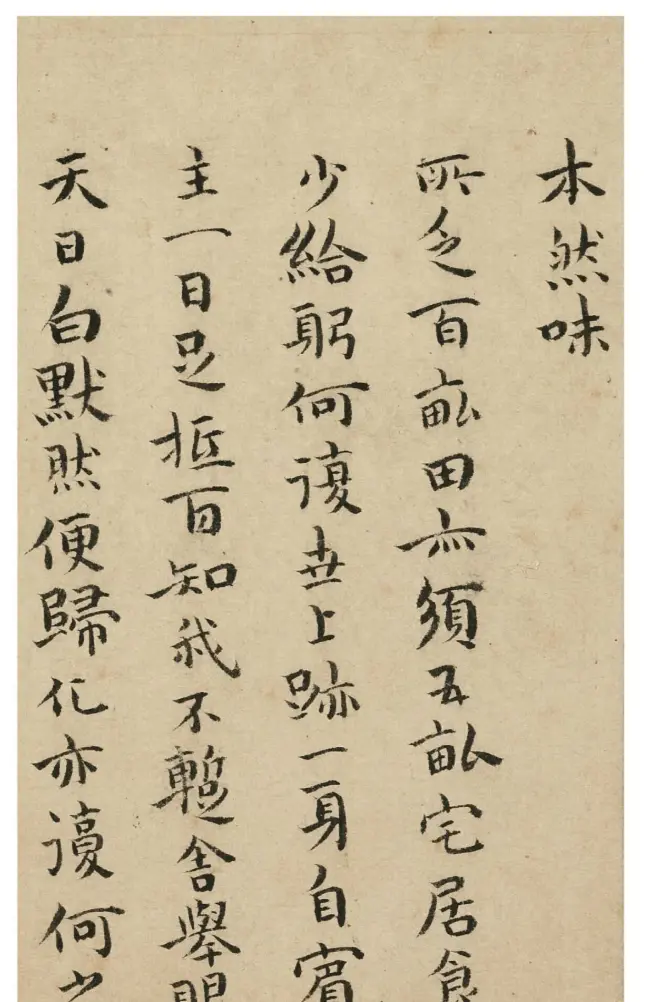 本然味
所乏百畝田亦須五畝宅居食
少給躬何復世上跡一身自賓
主一日足抵百知我不暫舍舉
天日白默然便歸化亦復何